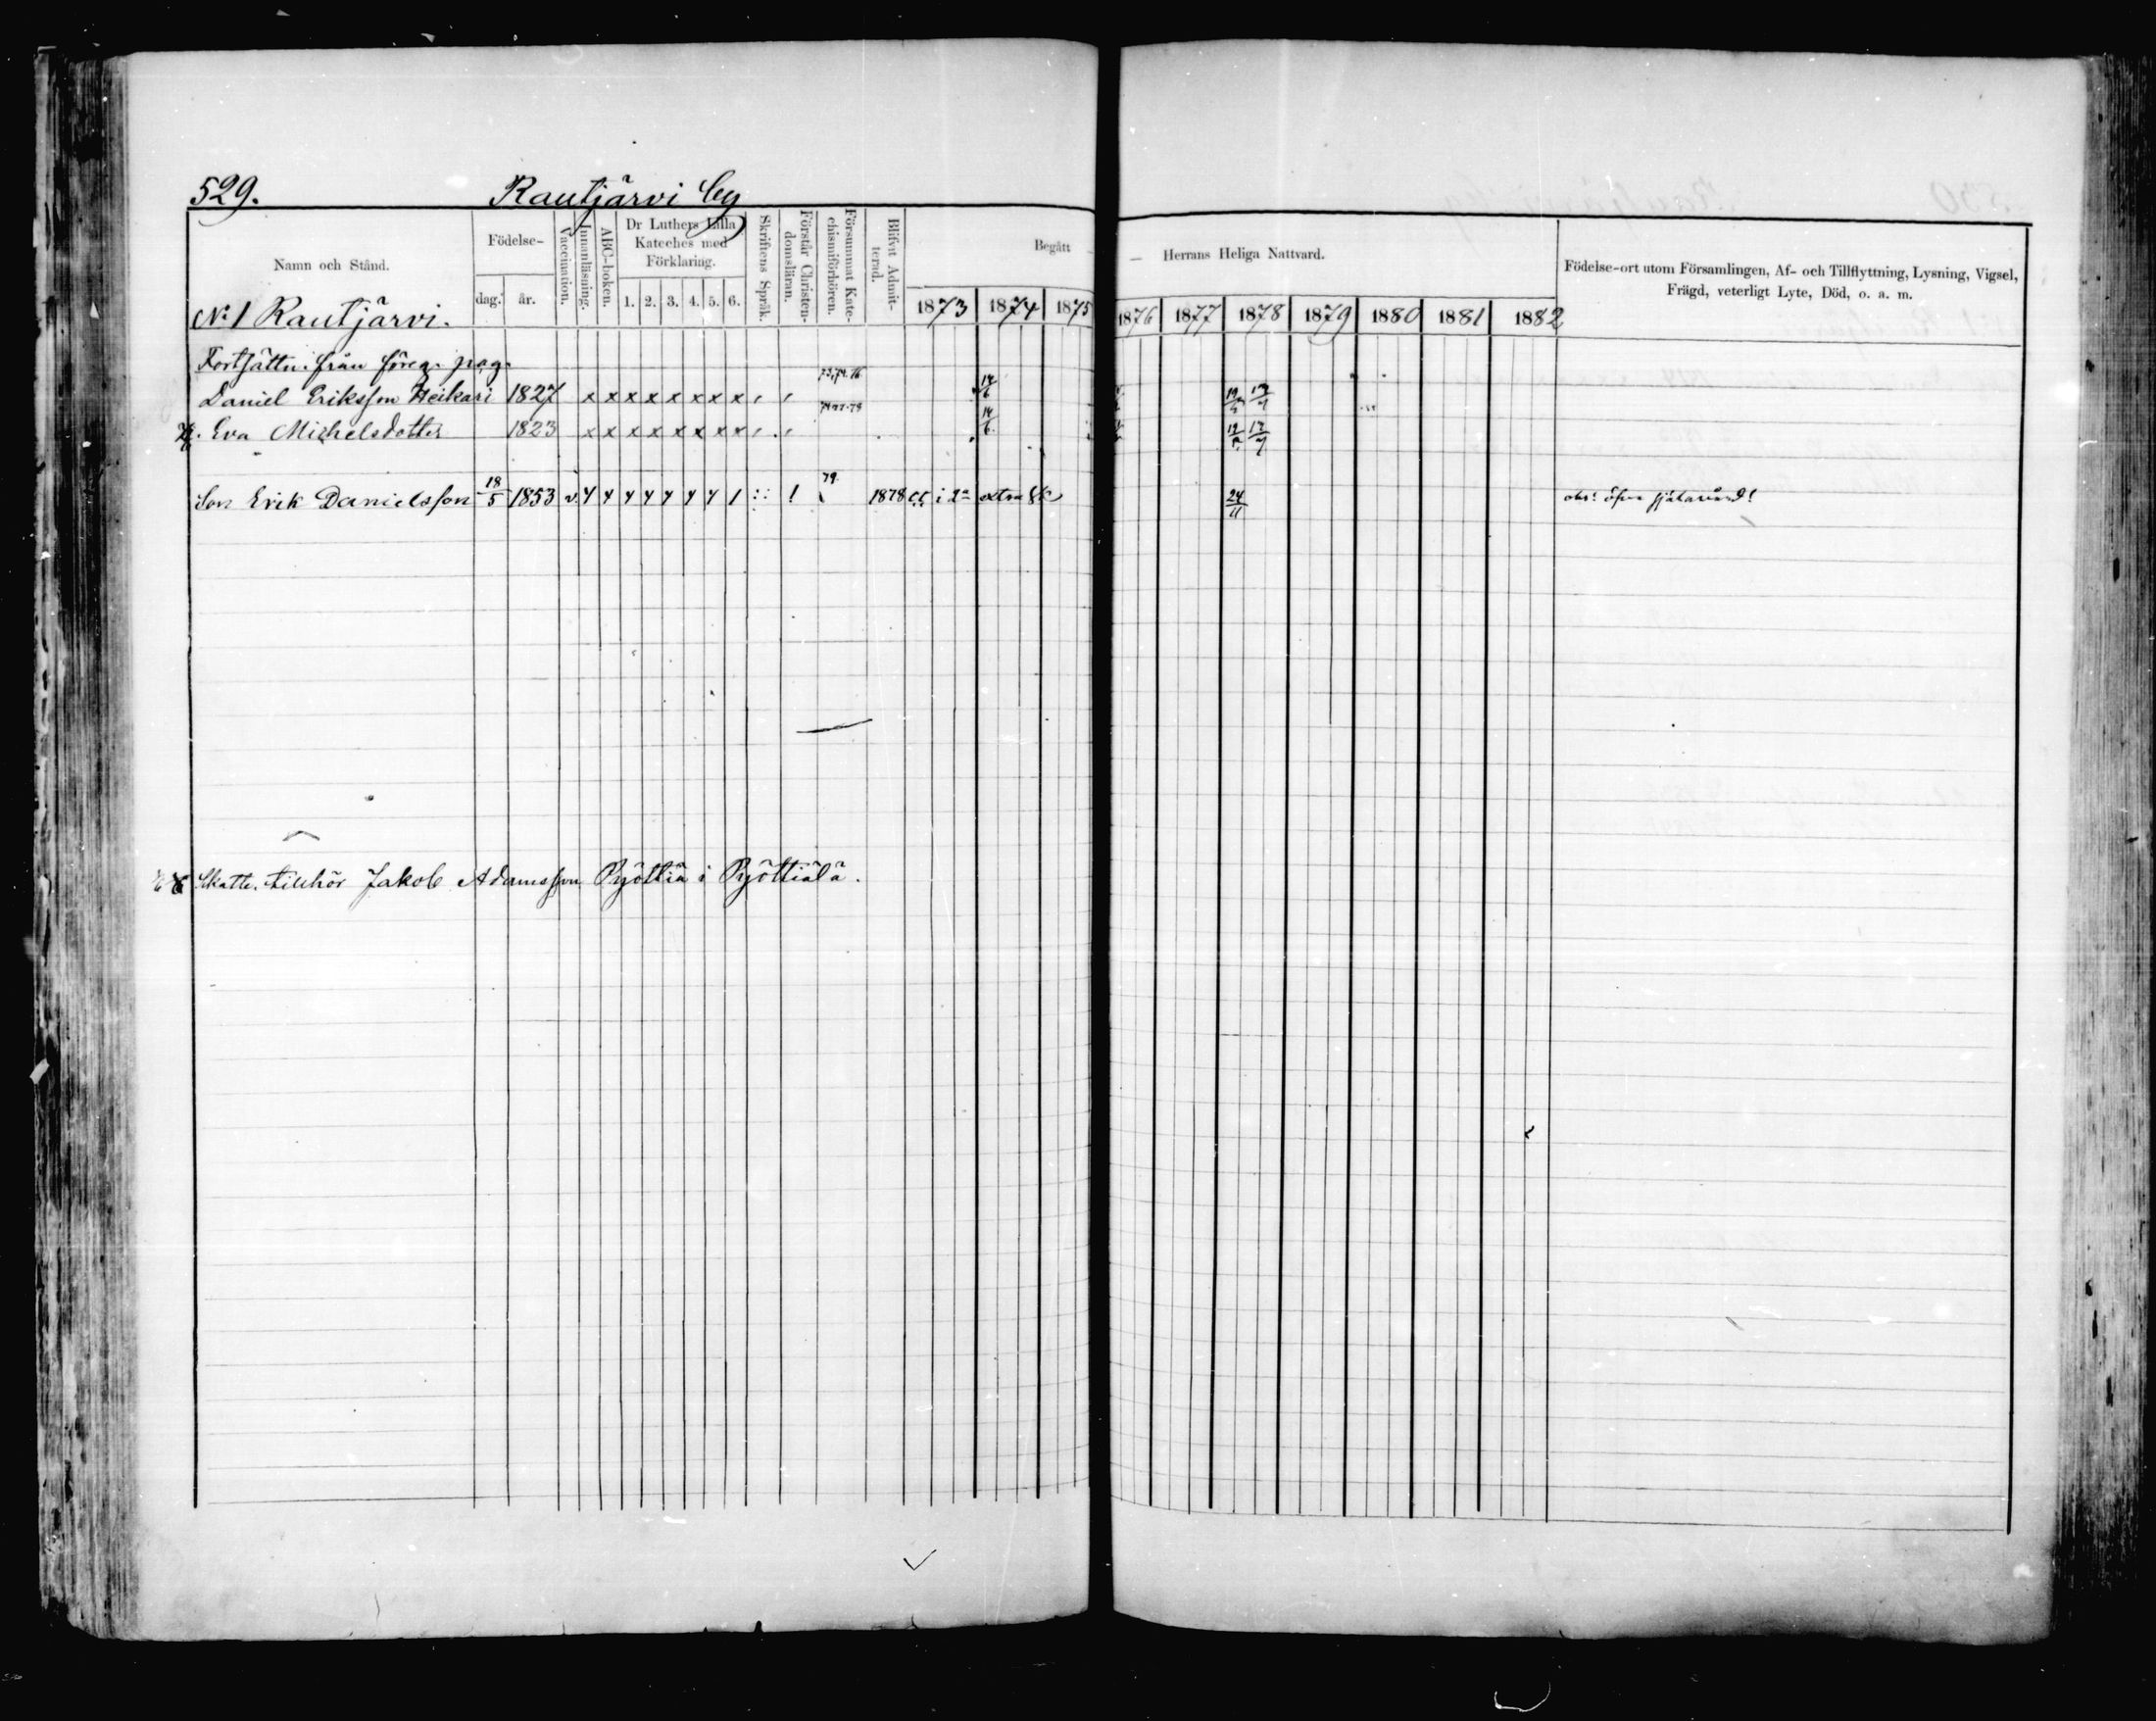 529. Rautjärvi by
Namn och Stånd.
Födelse-
dag. år.
Vaccination.
Innanläsning.
ABC-boken.
Dr Luthers Lilla
Kateches med
Förklaring.
1. 2. 3. 4. 5. 6.
Skriftens Språk.
Förstår Christen-
domsläran.
Försummat Kate-
chismiförhören.
Blifvit Admit-
terad.
Begått — Herrans Heliga Nattvard.
1873 1874 1875 1876 1877 1878 1879 1880 1881 1882
Födelse-ort utom Församlingen, Af- och Tillflyttning, Lysning, Vigsel,
Frägd, veterligt Lyte, Död, o. a. m.
No 1 Rautjärvi.
Fortsättn. från föreg. pag.
Daniel Eriksson Heikari 1827 x x x x x x x x 14/6
Eva Michelsdotter 1823 x x x x x x x x 14/6
Son Erik Danielsson 18/5 1853 v. 79 1878 i 2a extra 24/11 obs:
Skatte. tillhör Jakob Adamsson Pyöttiä i Pyöttiälä.